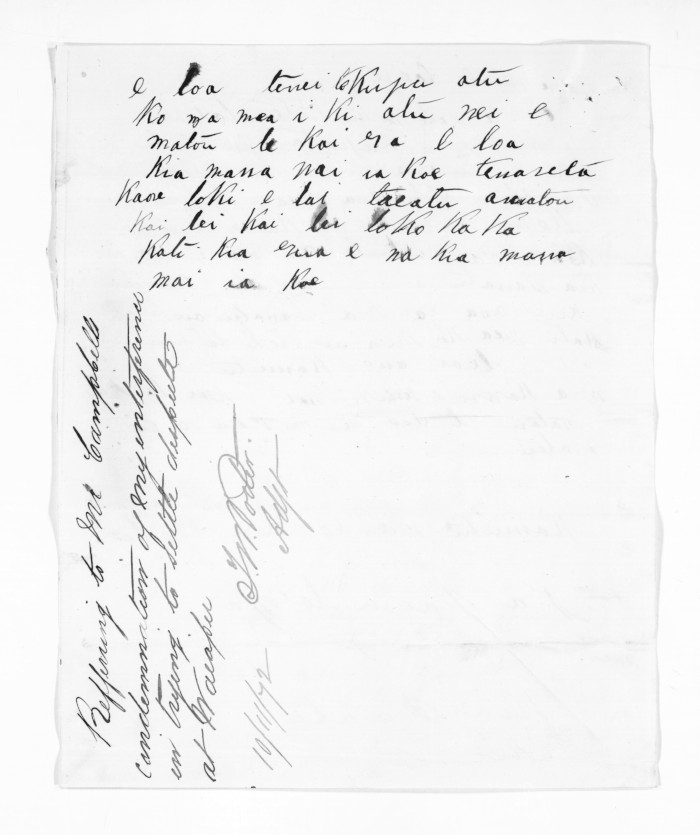 e loa tenei te Kupu atu
ko nga mea i ki atu nei e
matou le kai ra e loa
kia mana mai ia koe tenareta
kaore loki e lat taeatu amatou
kai lei kai lei loko ka ka
kati kia ena e na kia mana
mai ia koe
Refferring to Mr Campbells
condemnation of my interference
in trying to settle despeute
at Waeapu
10/11/72